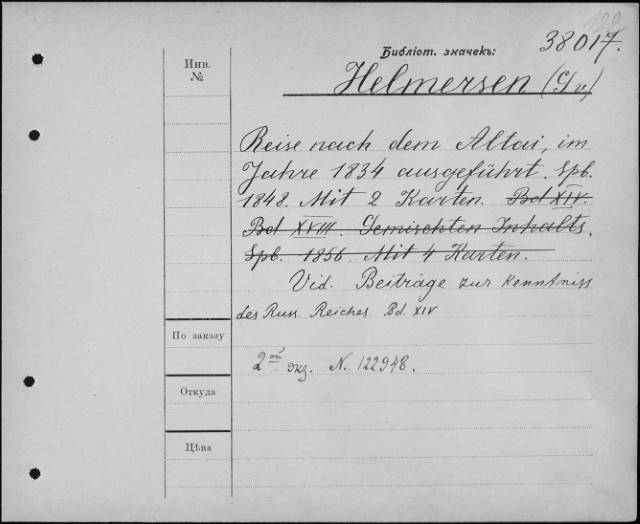 Библіот. значекъ: 38017.
Инв. №
Helmersen (G. v.)
Reise nach dem Altai, im
Jahre 1834 ausgeführt. Spb.
1848. Mit 2 Karten. Bd XIV.
Bd XVIII. Gemischten Inhalts.
Spb. 1856. Mit 4 Karten.
Vid. Beiträge zur Kenntniss
des Russ. Reiches. Bd. XIV
По заказу
2ой экз. N. 122948.
Откуда
Цѣна